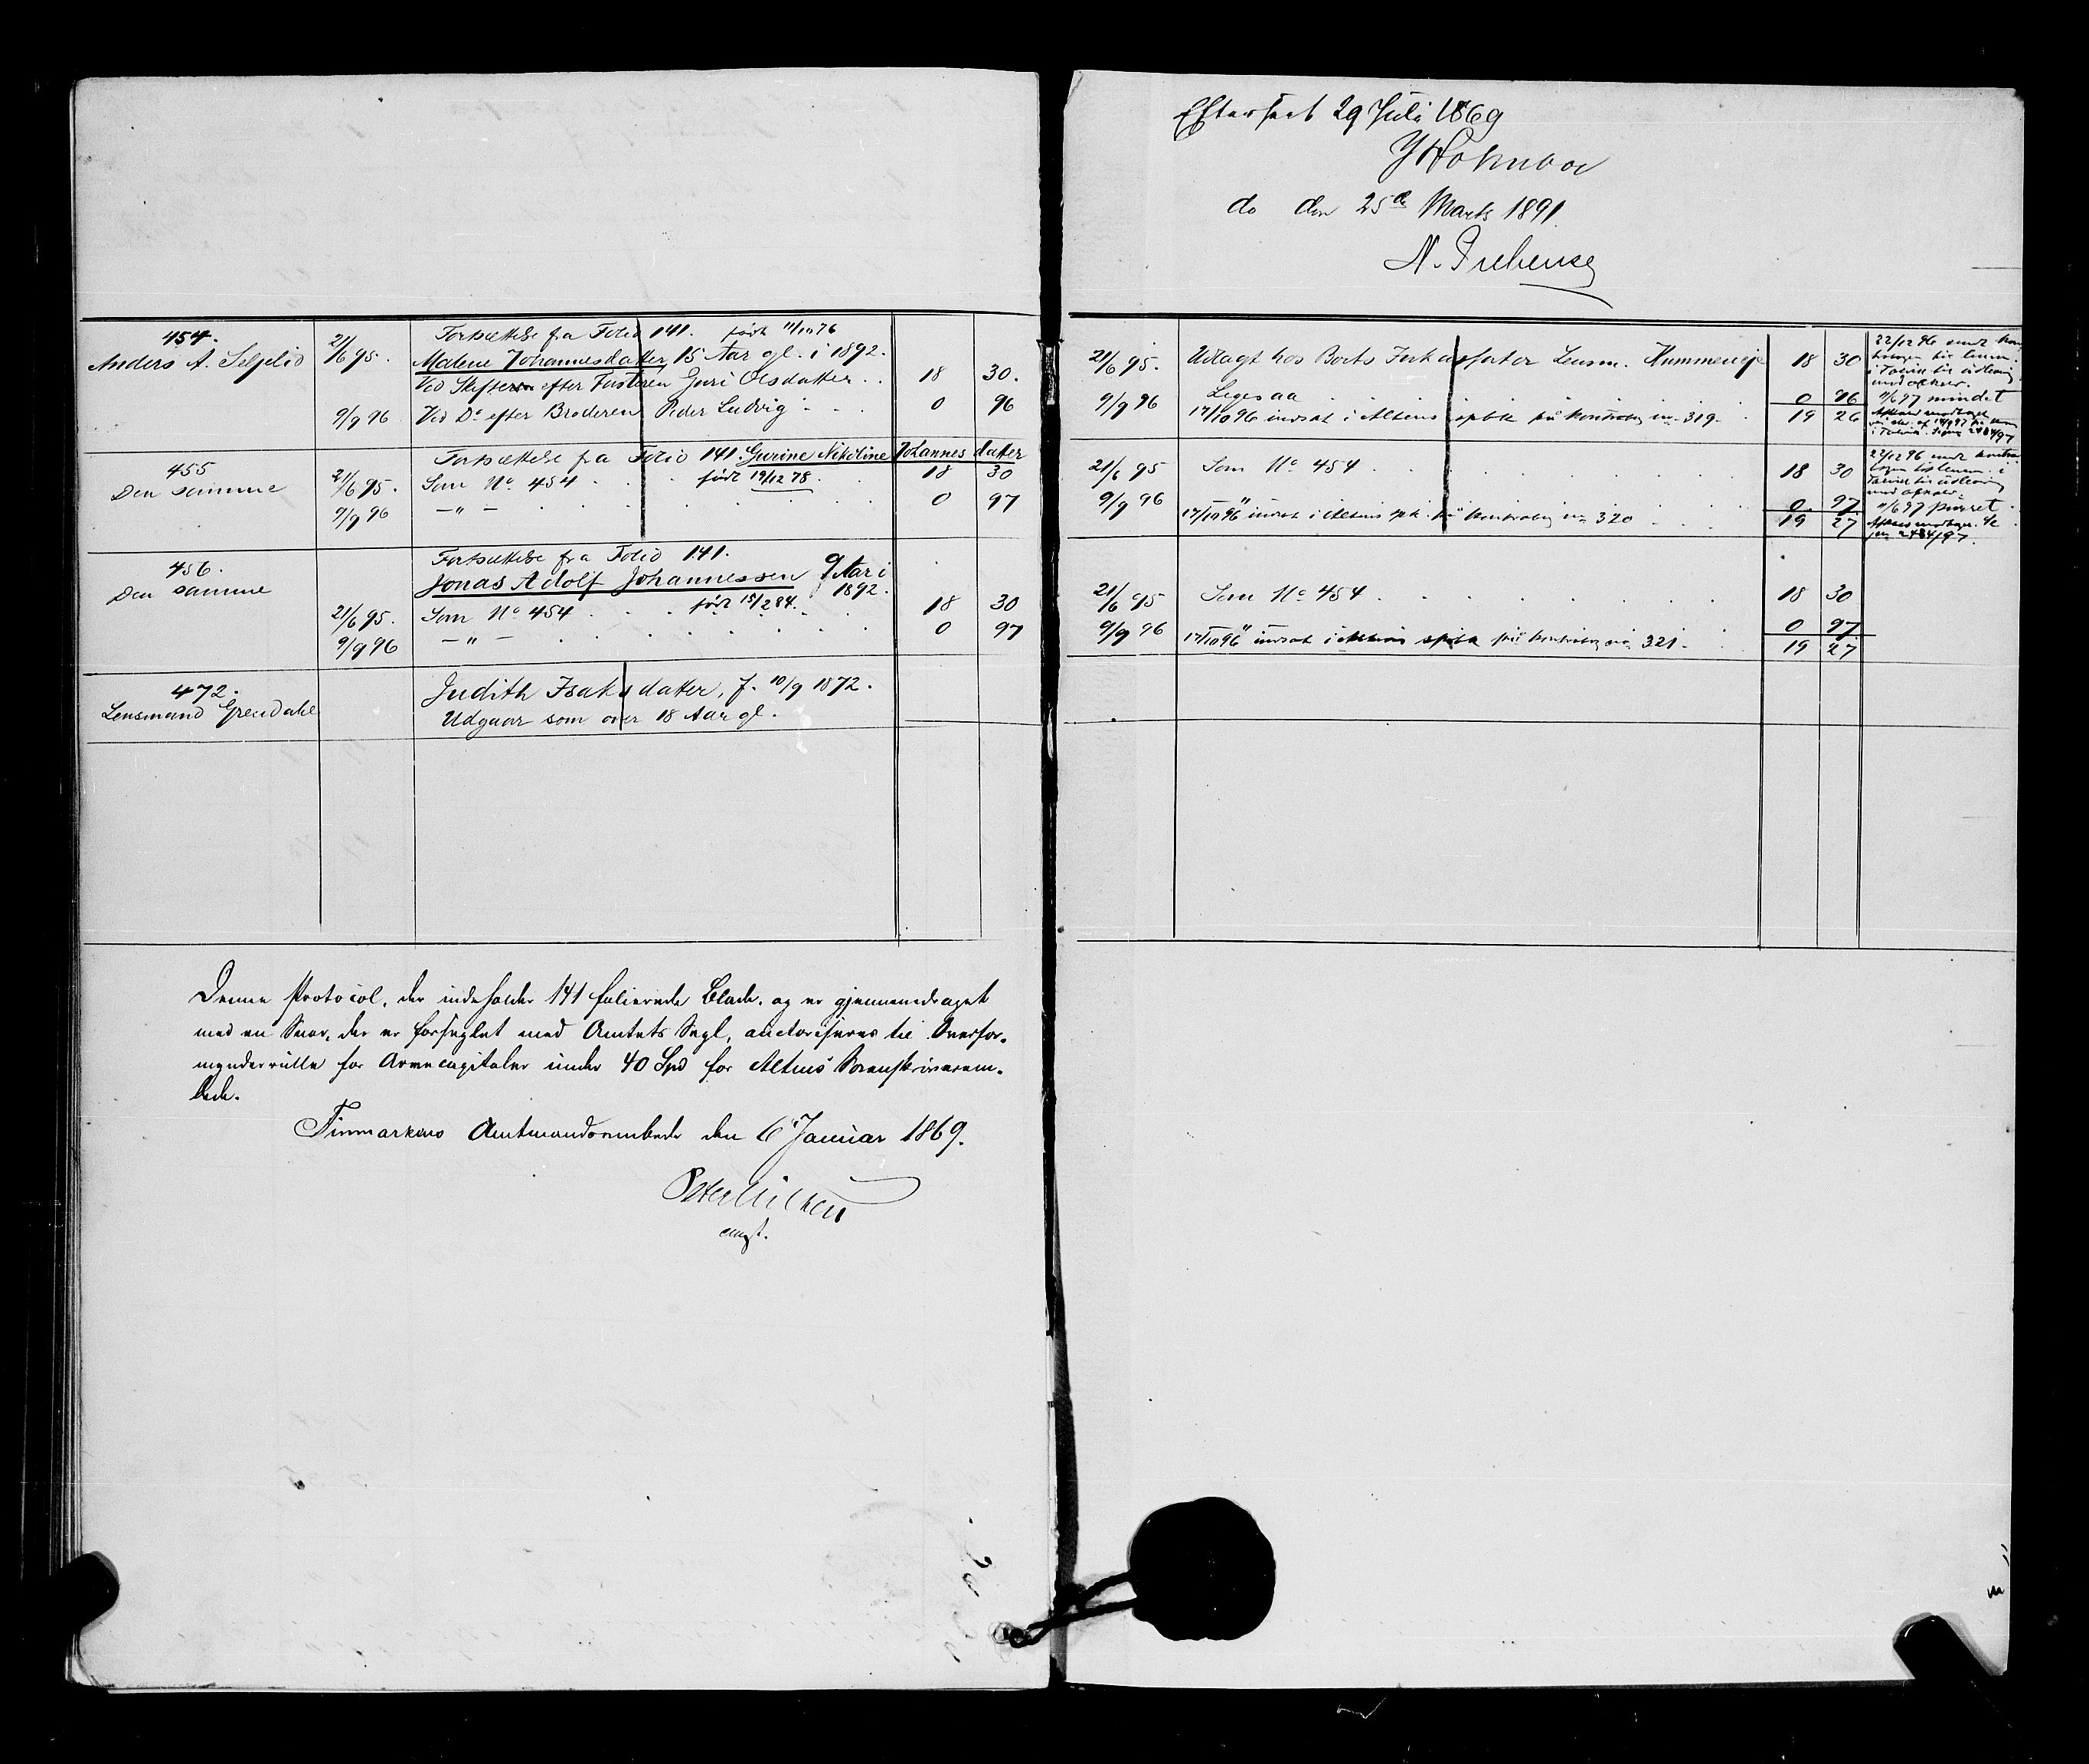 454.
Anders A. Seljelid
21/6 95.
Fortsættelse fra Folio 141. født 11/10 76
Malene Johannesdatter, 15 Aar gl. i 1892.
Ved Skifte efter Fasteren Guri Olsdatter . . 18 30.
9/9 96 Ved Do efter Broderen Peder Ludvig . . . 0 96
455
Den samme
Fortsættelse fra Folio 141. Gurine Nikoline Johannesdatter
født 19/12 78.
21/6 95. Som No 454 . . . 18 30
9/9 96 —"— . . . 0 97
456.
Den samme
Fortsættelse fra Folio 141.
Jonas Adolf Johannessen 9 Aar i 1892.
født 15/2 84.
21/6 95. Som No 454 . . . 18 30
9/9 96 —"— . . . 0 97
472.
Lensmand Grendahl
Judith Isaksdatter, f. 10/9 1872.
Udgaar som over 18 Aar gl.
Denne Protocol, der indeholder 141 folierede Blade, og er gjennemdraget
med en Snor, der er forseglet med Amtets Segl, auctoriseres til Overfor-
mynderrulle for Arvecapitaler under 40 Spd for Altens Sorenskriverem-
bede.
Finmarkens Amtmandsembede den 6 Januar 1869.
Efterseet 29 Juli 1869
J Holmboe
do den 25de Marts 1891
N. Prebensen
21/6 95. Udlagt hos Lensm. 18 30
9/9 96 0 96
17/10 96 indsat i Altens spbk på kontrabog no 319. 19 26
21/6 95 Som No 454 . . . 18 30
9/9 96 " 0 97
17/10 96 indsat i Altens spk. på kontrabog no 320 . . . 19 27
21/6 95 Som No 454 . . . 18 30
9/9 96 " 0 97
17/10 96 indsat i Altens spbk på kontrabog no 321. 19 27
22/12 96 sendt
bogen til lensm.
i Talvik til udlevering
mod afkald.
11/6 97 mindet
22/12 96 sendt kontra
bogen til lensm. i
Talvik til udlevering
mod afkald.
11/6 97 purret